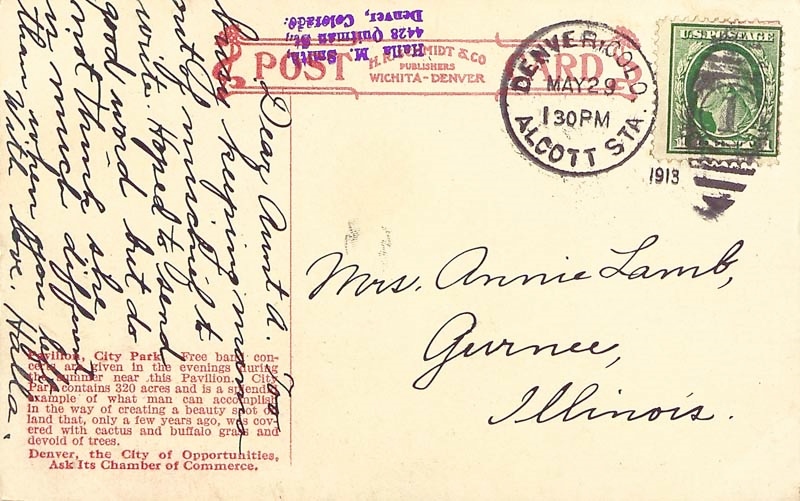 Halla M. Smith,
4428 Quitman St.,
Denver, Colorado.
POST CARD
H. H. SCHMIDT & CO
PUBLISHERS
WICHITA-DENVER
DENVER, COLO.
MAY 29
1 30 PM
ALCOTT STA.
1913
U.S. POSTAGE
1
Dear Aunt A. Too
busy keeping mamma
out of mischief to
write. Hoped to send
good word but do
not think she
is much different
than when you left
With love Halla.
Mrs. Annie Lamb,
Gurnee,
Illinois.
Pavilion, City Park. Free band con-
certs are given in the evenings during
the summer near this Pavilion. City
Park contains 320 acres and is a splendid
example of what man can accomplish
in the way of creating a beauty spot of
land that, only a few years ago, was cov-
ered with cactus and buffalo grass and
devoid of trees.
Denver, the City of Opportunities,
Ask Its Chamber of Commerce.